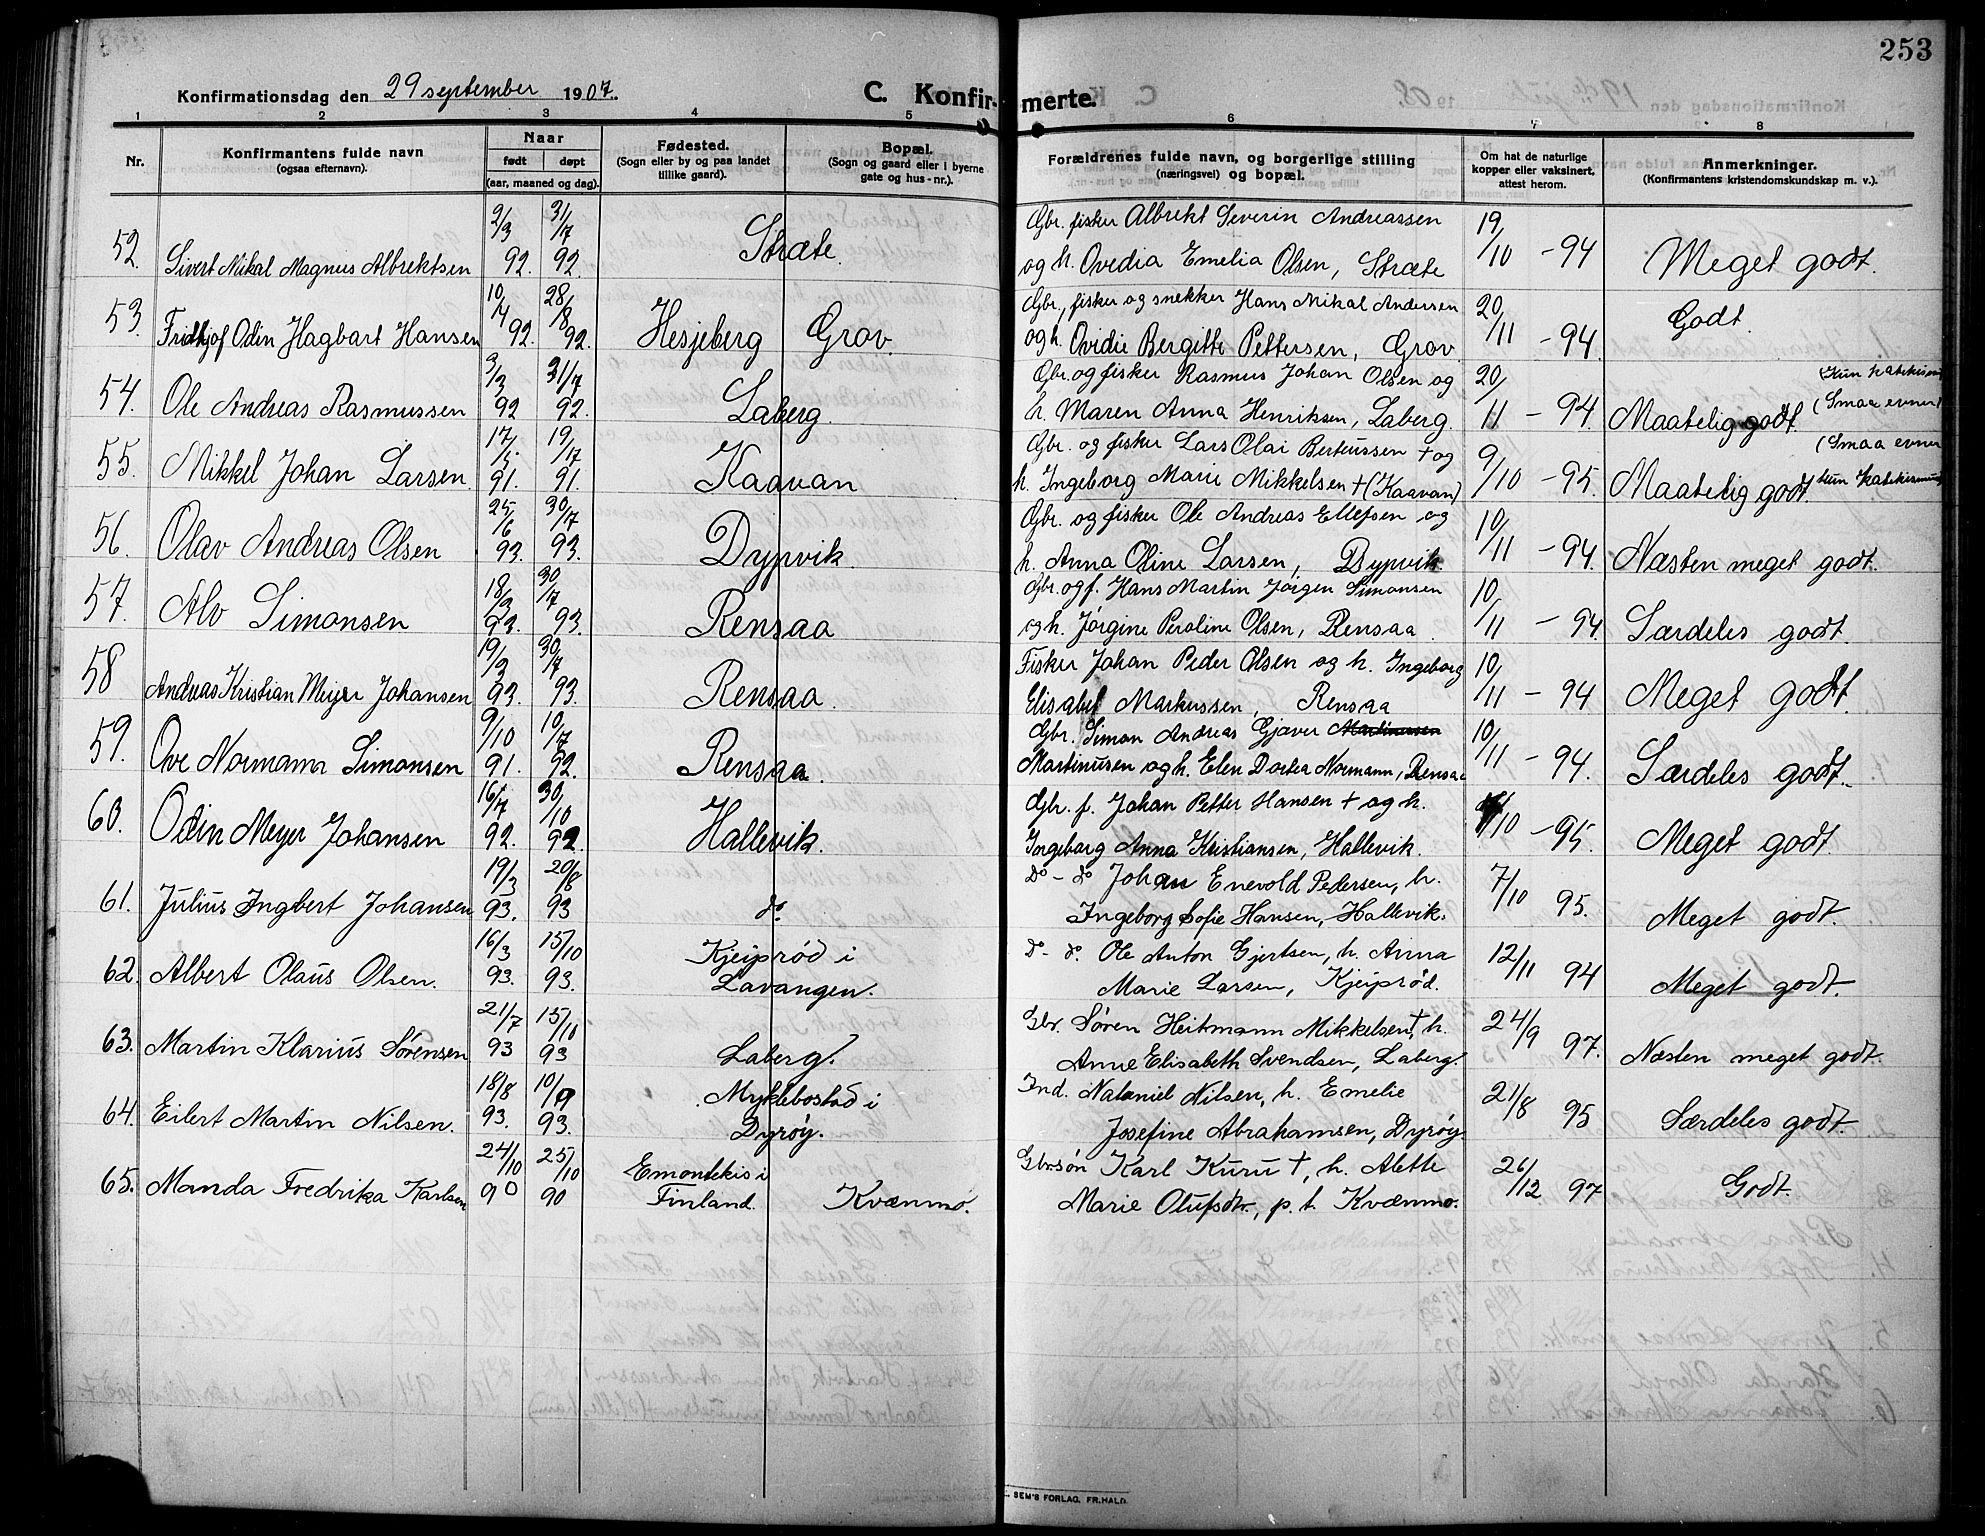 253
Konfirmationsdag den 29 september 1907.
C. Konfirmerte.
1 2 3 4 5 6 7 8
Nr.
Konfirmantens fulde navn
(ogsaa efternavn).
Naar
født døpt
(aar, maaned og dag).
Fødested.
(Sogn eller by og paa landet
tillike gaard).
Bopæl.
(Sogn og gaard eller i byerne
gate og hus-nr.).
Forældrenes fulde navn, og borgerlige stilling
(næringsvei) og bopæl.
Om hat de naturlige
kopper eller vaksinert,
attest herom.
Anmerkninger.
(Konfirmantens kristendomskundskap m. v.).
2/3 31/7 Gbr. fisker Albrekt Severin Andreassen 19
52. Sivert Mikal Magnus Albrektsen 92. 92. Stræte. og h. Ovedia Emelia Olsen, Stræte /10 - 94 Meget godt.
10/4 28/8 Gbr., fisker og snekker Hans Mikal Andersen 20
53. Fridtjof Odin Hagbart Hansen 92. 92. Hesjeberg Grov. og h. Ovidie Bergitte Pettersen, Grov. /11 - 94. Godt.
3/3 31/7 Gbr. og fisker Rasmus Johan Olsen og 20/ (kun katekismus
54. Ole Andreas Rasmussen 92 92. Laberg. h. Maren Anna Henriksen, Laberg. 11 - 94. Maatelig godt. (Smaa evner)
17/5 19/17 Gbr. og fisker Lars Olai Berteussen + og (Smaa evner
55. Mikkel Johan Larsen. 91. 91. Kaavan h. Ingeborg Marie Mikkelsen + (Kaavan) 9/10 - 95. Maatelig godt. kun katekismus
25/6 30/7 Gbr. og fisker Ole Andreas Ellefsen og 10
56. Olav Andreas Olsen 93. 93. Dypvik. h. Anna Oline Larsen, Dypvik. /11 - 94. Næsten meget godt.
18/3 30/7 Gbr. og f. Hans Martin Jørgen Simonsen 10
57. Alv Simonsen 93. 93. Rensaa og h. Jørgine Peroline Olsen, Rensaa. /11 - 94 Særdeles godt.
19/3 30/7 Fisker Johan Peder Olsen og h. Ingeborg 10
58 Andreas Kristian Meyer Johansen 93. 93. Rensaa. Elisabet Markussen, Rensaa /11 - 94 Meget godt.
9/10 10/7 Gbr. Simon Andreas Gjæver Martinussen 10
59. Ove Normann Simonsen 91. 92. Rensaa. Martinusen og h. Elen Dortea Normann, Rensaa /11 - 94. Særdeles godt.
16/7 30/10 Gbr. f. Johan Petter Hansen + og h.
60. Odin Meyer Johansen 92. 92. Hallevik. Ingeborg Anna Kristiansen, Hallevik. /10 - 95. Meget godt.
19/3 20/8 do - do Johan Enevold Pedersen, h. 7/10
61. Julius Ingbert Johansen 93. 93 do. Ingeborg Sofie Hansen, Hallevik. 95. Meget godt.
16/3 15/10 Kjeiprød i do - do. Ole Anton Gjertsen, h. Anna 12/11
62. Albert Olaus Olsen. 93. 93. Lavangen. Marie Larsen, Kjeiprød. 94 Meget godt.
21/7 15/10 Gbr. Søren Heitmann Mikkelsen +, h. 24/9
63. Martin Klarius Sørensen 93 93 Laberg. Anne Elisabeth Svendsen, Laberg. 97. Næsten meget godt.
18/8 10/9 Myklebostad i Ind. Nataniel Nilsen, h. Emelie 21/8
64. Eilert Martin Nilsen. 93. 93. Dyrøy. Josefine Abrahamsen, Dyrøy. 95 Særdeles godt.
24/10 25/10 Emontekis i Gbrsøn Karl Kuru +, h. Alette 26/12
65. Manda Fredrika Karlsen 90 90 Finland. Kvænmo. Marie Olufsdtr., p. t. Kvænmo. 97 Godt.
SEM'S FORLAG, FR.HALD.